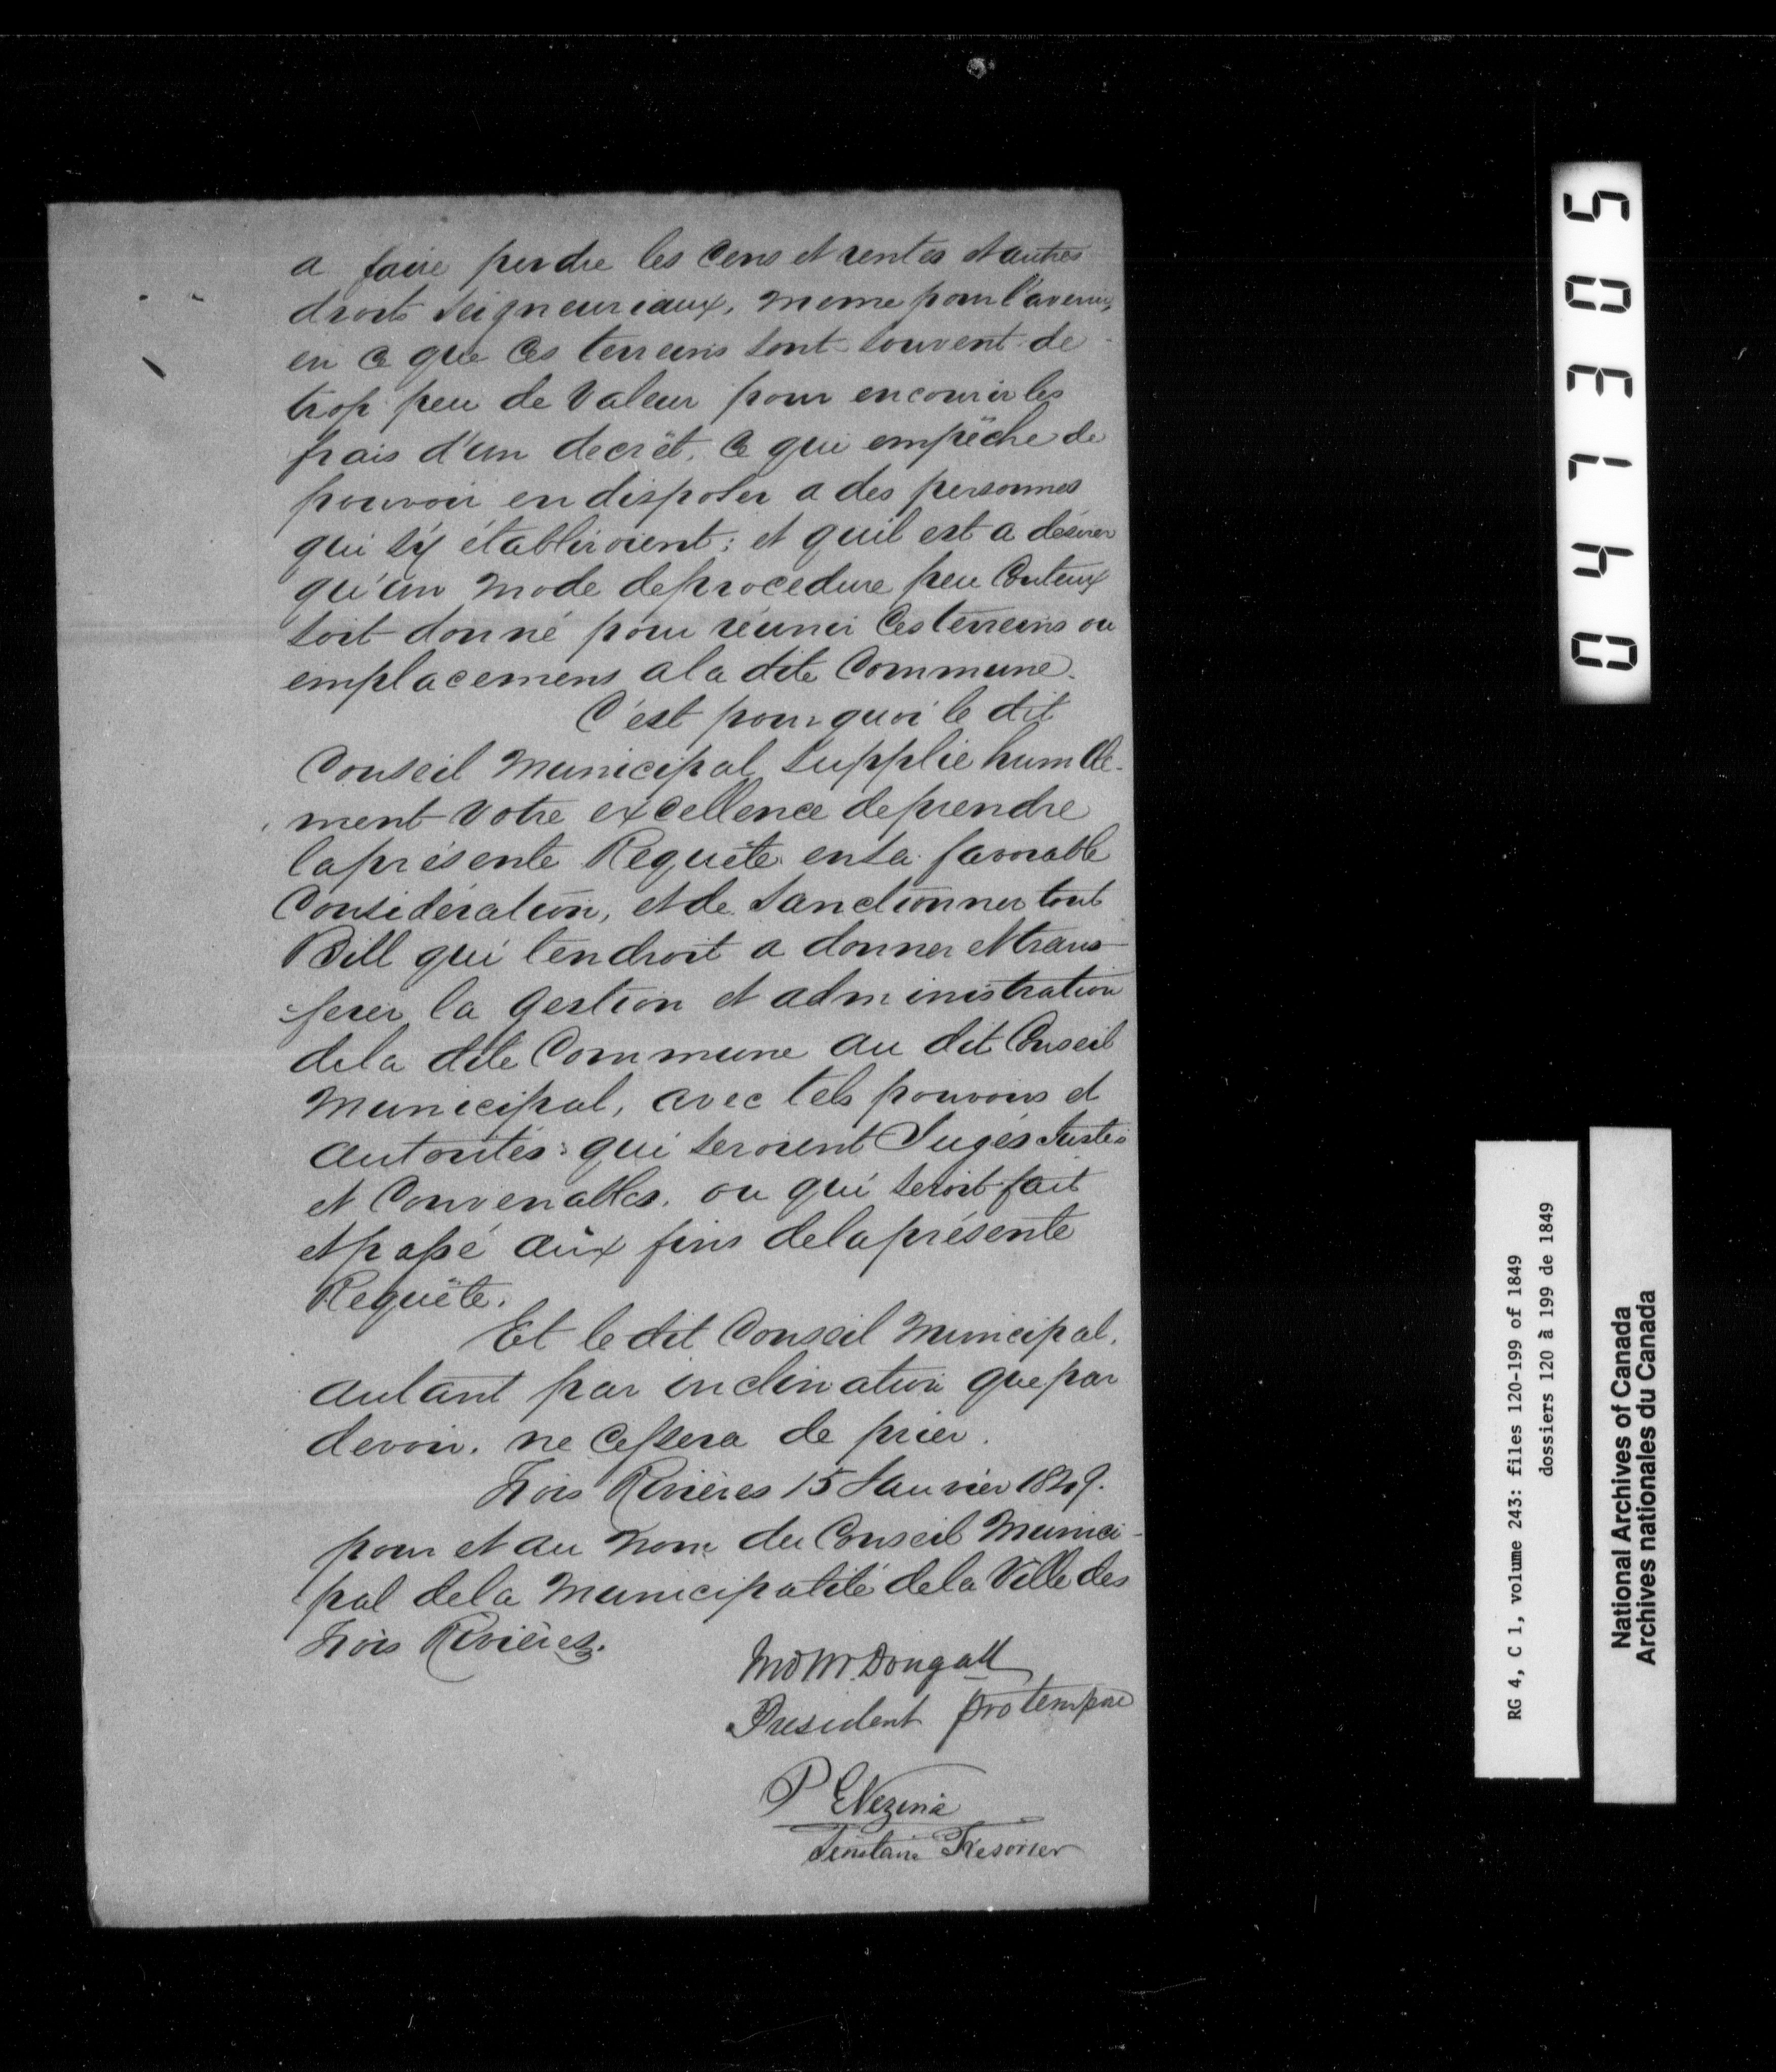 a faire perdre les Cens et rentes et autres
droits Seigneuriaux, meme pour l'avenir,
en ce que ces terreins sont souvent de
trop peu de Valeur pour encourir les
frais d'un decrêt, ce qui empêche de
pouvoir en disposer a des personnes
qui s'y établiroient ; et quil est a désirer
qu'un mode de procedure peu Couteux
soit donné pour réunir Ces terreins ou
emplacemens a la dite Commune.
C'est pourquoi le dit
Conseil Municipal Supplie humble-
ment Votre excellence de prendre
la présente Requête en sa favorable
Considération, et de Sanctionner tout
Bill qui tendroit a donner et trans-
ferer la Gestion et administration
de la dite Commune au dit Conseil
Municipal, avec tels pouvoirs et
autorités qui seroient Jugés Justes
et Convenables, ou qui seroit fait
et passé aux fins de la présente
Requête.
Et le dit Conseil Municipal,
autant par inclination que par
devoir, ne Cessera de prier.
Trois Rivières 15 Janvier 1849.
pour et au Nom du Conseil Munici-
pal de la Municipalité de la Ville des
Trois Rivières.
McDougall
President pro tempore
P E Vezina
Secretaire Tresorier
0471305
RG 4, C 1, volume 243: files 120-199 of 1849
dossiers 120 à 199 de 1849
National Archives of Canada
Archives nationales du Canada